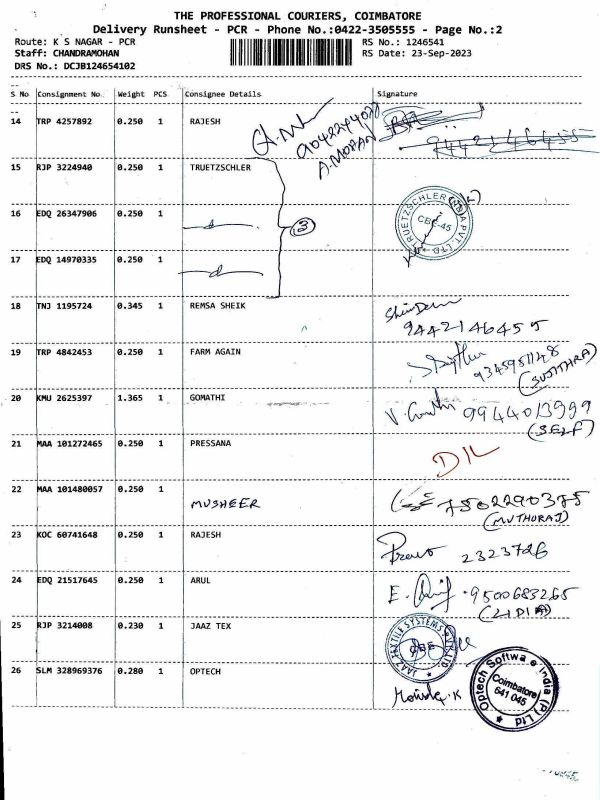 THE PROFESSIONAL COURIERS, COIMBATORE
Delivery Runsheet - PCR - Phone No.:0422-3505555 - Page No.:2
Route: K S NAGAR - PCR RS No.: 1246541
Staff: CHANDRAMOHAN RS Date: 23-Sep-2023
DRS No.: DCJB124654102
S No Consignment No. Weight PCS Consignee Details Signature
14 TRP 4257892 0.250 1 RAJESH
A.MOHAN
9442146455
15 RJP 3224940 0.250 1 TRUETZSCHLER
16 EDQ 26347906 0.250 1
3
TRUETZSCHLER INDIA PVT. LTD
CBE-45
17 EDQ 14970335 0.250 1
18 TNJ 1195724 0.345 1 REMSA SHEIK
9442146455
19 TRP 4842453 0.250 1 FARM AGAIN
9345951148
(SUJITHRA)
20 KMU 2625397 1.365 1 GOMATHI
9944013999
(SELF)
21 MAA 101272465 0.250 1 PRESSANA
D/L
22 MAA 101480057 0.250 1 MUSHEER
7502290375
(MUTHURAJ)
23 KOC 60741648 0.250 1 RAJESH
2323726
24 EDQ 21517645 0.250 1 ARUL
9500683265
(LIDIA)
25 RJP 3214008 0.230 1 JAAZ TEX
JAAZ TEXTILE SYSTEMS PVT. LTD.
CBE
26 SLM 328969376 0.280 1 OPTECH
Optech Software India (P) Ltd
Coimbatore
641 045